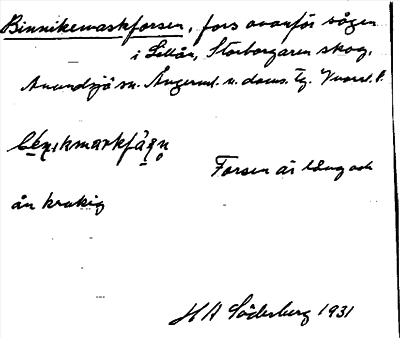 Binnikemaskforsen, fors ovanför sågen
i Lillån, Storborgaren skog,
Anundsjö sn. Ångerml. n. doms. tg. Vnorrl. l.
Forsen är lång och
ån krokig
HA Söderberg 1931